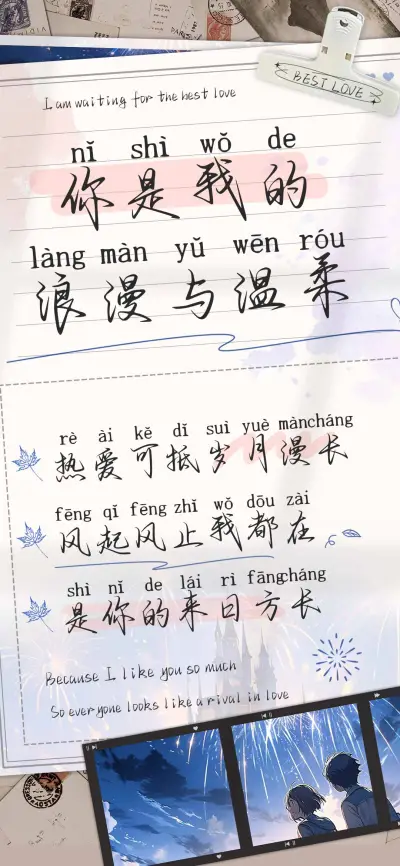 BEST LOVE
I am waiting for the best love
nǐ shì wǒ de
你是我的
làng màn yǔ wēn róu
浪漫与温柔
rè ài kě dǐ suì yuè màncháng
热爱可抵岁月漫长
fēng qǐ fēng zhǐ wǒ dōu zài
风起风止我都在
shì nǐ de lái rì fāngcháng
是你的来日方长
Because I like you so much
So everyone looks like a rival in love